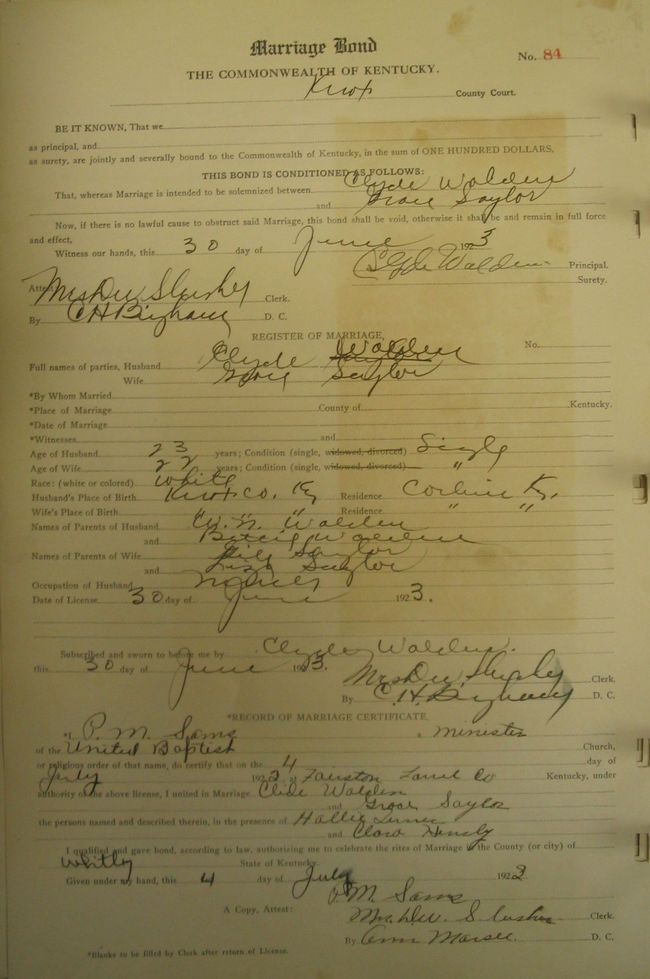 Marriage Bond
No. 84
THE COMMONWEALTH OF KENTUCKY.
Knox County Court.
BE IT KNOWN, That we
as principal, and
as surety, are jointly and severally bound to the Commonwealth of Kentucky, in the sum of ONE HUNDRED DOLLARS.
THIS BOND IS CONDITIONED AS FOLLOWS:
That, whereas Marriage is intended to be solemnized between Clyde Walden
and Saylor
Now, if there is no lawful cause to obstruct said Marriage, this bond shall be void, otherwise it shall be and remain in full force
and effect,
Witness our hands, this 30 day of June 1923
Clyde Walden Principal.
Surety.
Attest Mrs Dee Slusher Clerk.
By C H Bingham D. C.
REGISTER OF MARRIAGE,
No.
Full names of parties, Husband Clyde Walden
Wife Saylor
*By Whom Married
*Place of Marriage County of Kentucky.
*Date of Marriage
*Witnesses and
Age of Husband 23 years; Condition (single, widowed, divorced) Single
Age of Wife 22 years; Condition (single, widowed, divorced) "
Race: (white or colored) White
Husband's Place of Birth Knox Co. Ky Residence Corbin Ky.
Wife's Place of Birth " " Residence " "
Names of Parents of Husband Walden
and Walden
Names of Parents of Wife Saylor
and Saylor
Occupation of Husband
Date of License 30 day of June 1923.
Subscribed and sworn to before me by Clyde Walden.
this 30 day of June 1923.
Mrs Dee Slusher Clerk.
By C. H. Bingham D. C.
*RECORD OF MARRIAGE CERTIFICATE.
*I, P. M. Sams a minister
of the United Baptist Church,
or religious order of that name, do certify that on the 4 day of
July 1923 at Laurel Co Kentucky, under
authority of the above license, I united in Marriage Clide Walden
and Grace Saylor
the persons named and described therein, in the presence of Hallie
and Clara Hensly
I qualified and gave bond, according to law, authorizing me to celebrate the rites of Marriage in the County (or city) of
Whitley State of Kentucky.
Given under my hand, this 4 day of July 1923
P M. Sams
A Copy, Attest: Mrs Dee Slusher Clerk.
By Ann D. C.
*Blanks to be filled by Clerk after return of License.